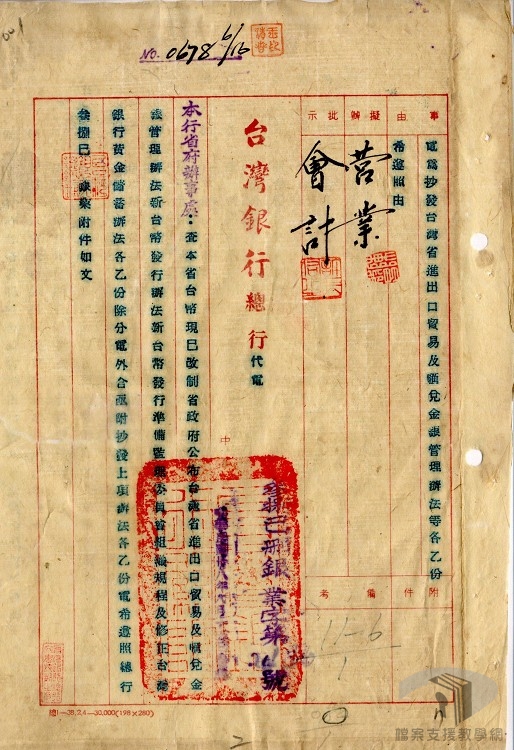 NO. 0678
事由
擬辦
批示
電為抄發台灣省進出口貿易及匯兌金銀管理辦法等各乙份
希遵照由
營業
會計
附件
備考
台灣銀行總行代電
中
叁捌巳刪銀業字第 號
本行省府辦事處:查本省台幣現已改制省政府公布台灣省進出口貿易及匯兌金
銀管理辦法新台幣發行辦法新台幣發行準備監理委員會組織規程及修正台灣
銀行黃金儲蓄辦法各乙份除分電外合亟附抄發上項辦法各乙份電希遵照總行
叁捌巳 銀業附件如文
檔案支援教學網